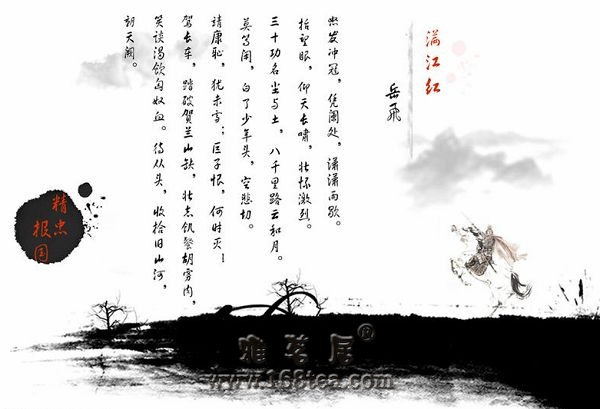 满江红
岳飛
怒发冲冠，凭阑处，潇潇雨歇。
抬望眼，仰天长啸，壮怀激烈。
三十功名尘与土，八千里路云和月。
莫等闲，白了少年头，空悲切。
靖康耻，犹未雪；臣子恨，何时灭！
驾长车，踏破贺兰山缺，壮志饥餐胡虏肉，
笑谈渴饮匈奴血。待从头，收拾旧山河，
朝天阙。
精忠
报国
雅茗居®
www.168tea.com